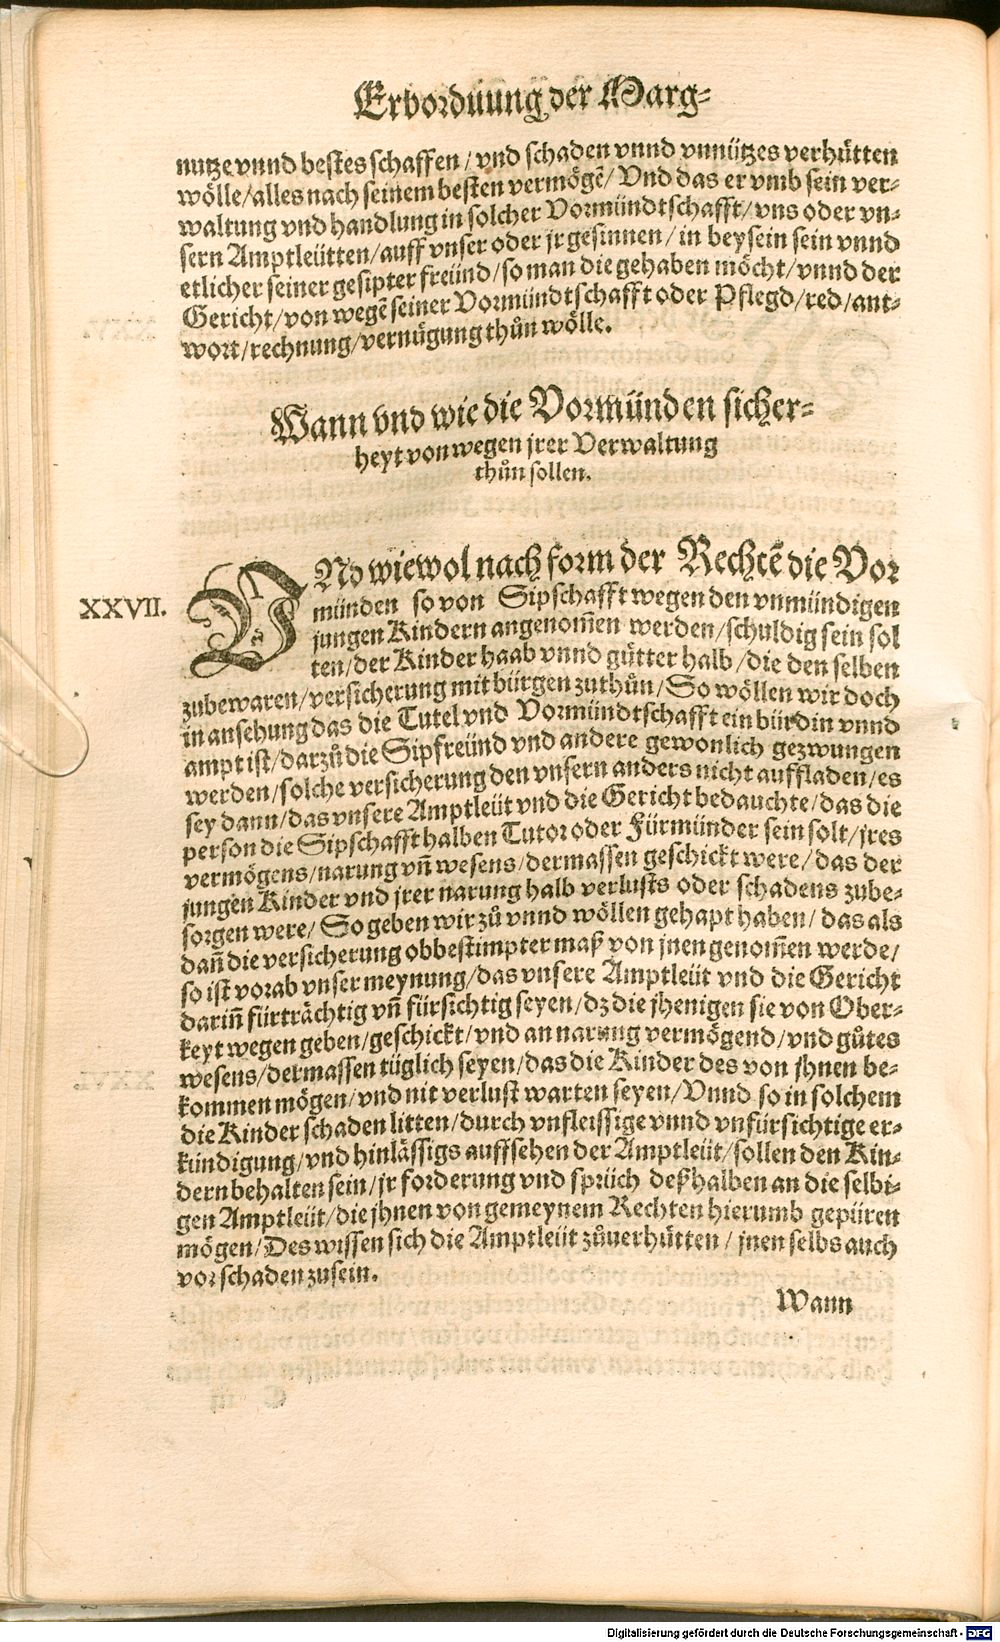 Erbordnung der Marg-
nutze vnnd bestes schaffen / vnd schaden vnnd vnnützes verhütten
wölle/alles nach seinem besten vermögē/ Vnd das er vmb sein ver-
waltung vnd handlung in solcher Vormündtschafft/ vns oder vn-
sern Amptleütten/auff vnser oder jr gesinnen / in beysein sein vnnd
etlicher seiner gesipter freünd/so man die gehaben möcht/ vnnd der
Gericht/von wegē seiner Vormündtschafft oder Pflegd/red/ant-
wort/rechnung/vernügung thůn wölle.
Wann vnd wie die Vormünden sicher-
heyt von wegen jrer Verwaltung
thůn sollen.
XXVII.
VNd wiewol nach form der Rechtē die Vor
münden so von Sipschafft wegen den vnmündigen
jungen Kindern angenom̄en werden/schuldig sein sol
ten/der Kinder haab vnnd gütter halb /die den selben
zubewaren/versicherung mit bürgen zuthůn/So wöllen wir doch
in ansehung das die Tutel vnd Vormündtschafft ein bürdin vnnd
ampt ist/darzů die Sipfreünd vnd andere gewonlich gezwungen
werden/solche versicherung den vnsern anders nicht auffladen/es
sey dann/das vnsere Amptleüt vnd die Gericht bedauchte/das die
person die Sipschafft halben Tutor oder Fürmünder sein solt/jres
vermögens/narung vn̄ wesens/dermassen geschickt were/das der
jungen Kinder vnd jrer narung halb verlusts oder schadens zube-
sorgen were/ So geben wir zů vnnd wöllen gehapt haben/ das als
dan̄ die versicherung obbestimpter maß von jnen genom̄en werde/
so ist vorab vnser meynung/das vnsere Amptleüt vnd die Gericht
darin̄ fürträchtig vn̄ fürsichtig seyen/dz die jhenigen sie von Ober-
keyt wegen geben/geschickt/vnd an narung vermögend/vnd gůtes
wesens/dermassen tüglich seyen/das die Kinder des von jhnen be-
kommen mögen/vnd nit verlust warten seyen/ Vnnd so in solchem
die Kinder schaden litten/durch vnfleissige vnnd vnfürsichtige er-
kündigung/vnd hinlässigs auffsehen der Amptleüt/sollen den Kin-
dern behalten sein/jr forderung vnd sprüch deßhalben an die selbi-
gen Amptleüt/die jhnen von gemeynem Rechten hierumb gepüren
mögen/Des wissen sich die Amptleüt zůuerhütten / jnen selbs auch
vor schaden zusein.
Wann
Digitalisierung gefördert durch die Deutsche Forschungsgemeinschaft - DFG